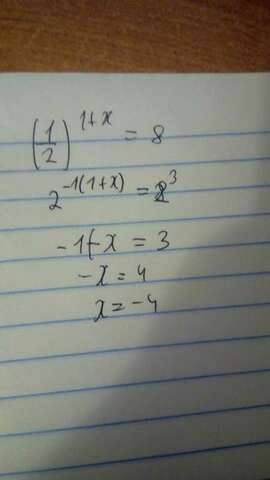 (1/2)^(1+x) = 8
2^(-1(1+x)) = 2^3
-1-x = 3
-x = 4
x = -4